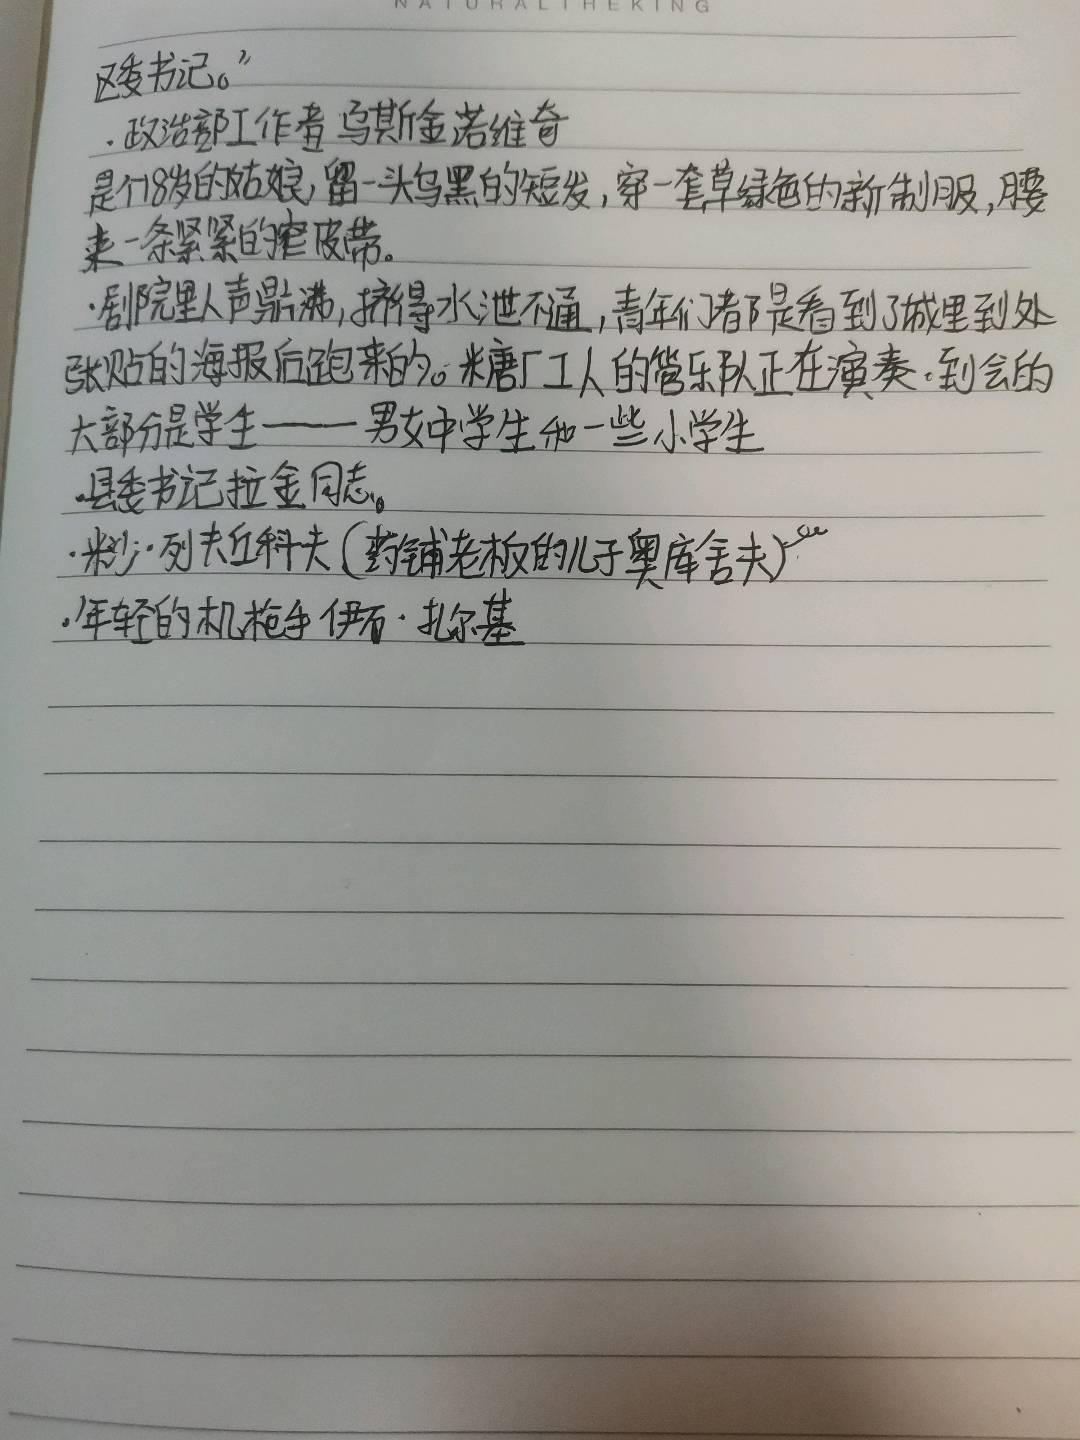 NATURALTHEKING
区委书记。”
·政治部工作者 乌斯金诺维奇
是个18岁的姑娘,留一头乌黑的短发,穿一套草绿色的新制服,腰
束一条紧紧的窄皮带。
·剧院里人声鼎沸,挤得水泄不通,青年们都是看到了城里到处
张贴的海报后跑来的。糖厂工人的管乐队正在演奏。到会的
大部分是学生——男女中学生和一些小学生
·县委书记拉金同志。
·米沙·列夫丘科夫(药铺老板的儿子奥库舍夫)
·年轻的机枪手 伊石·扎尔基